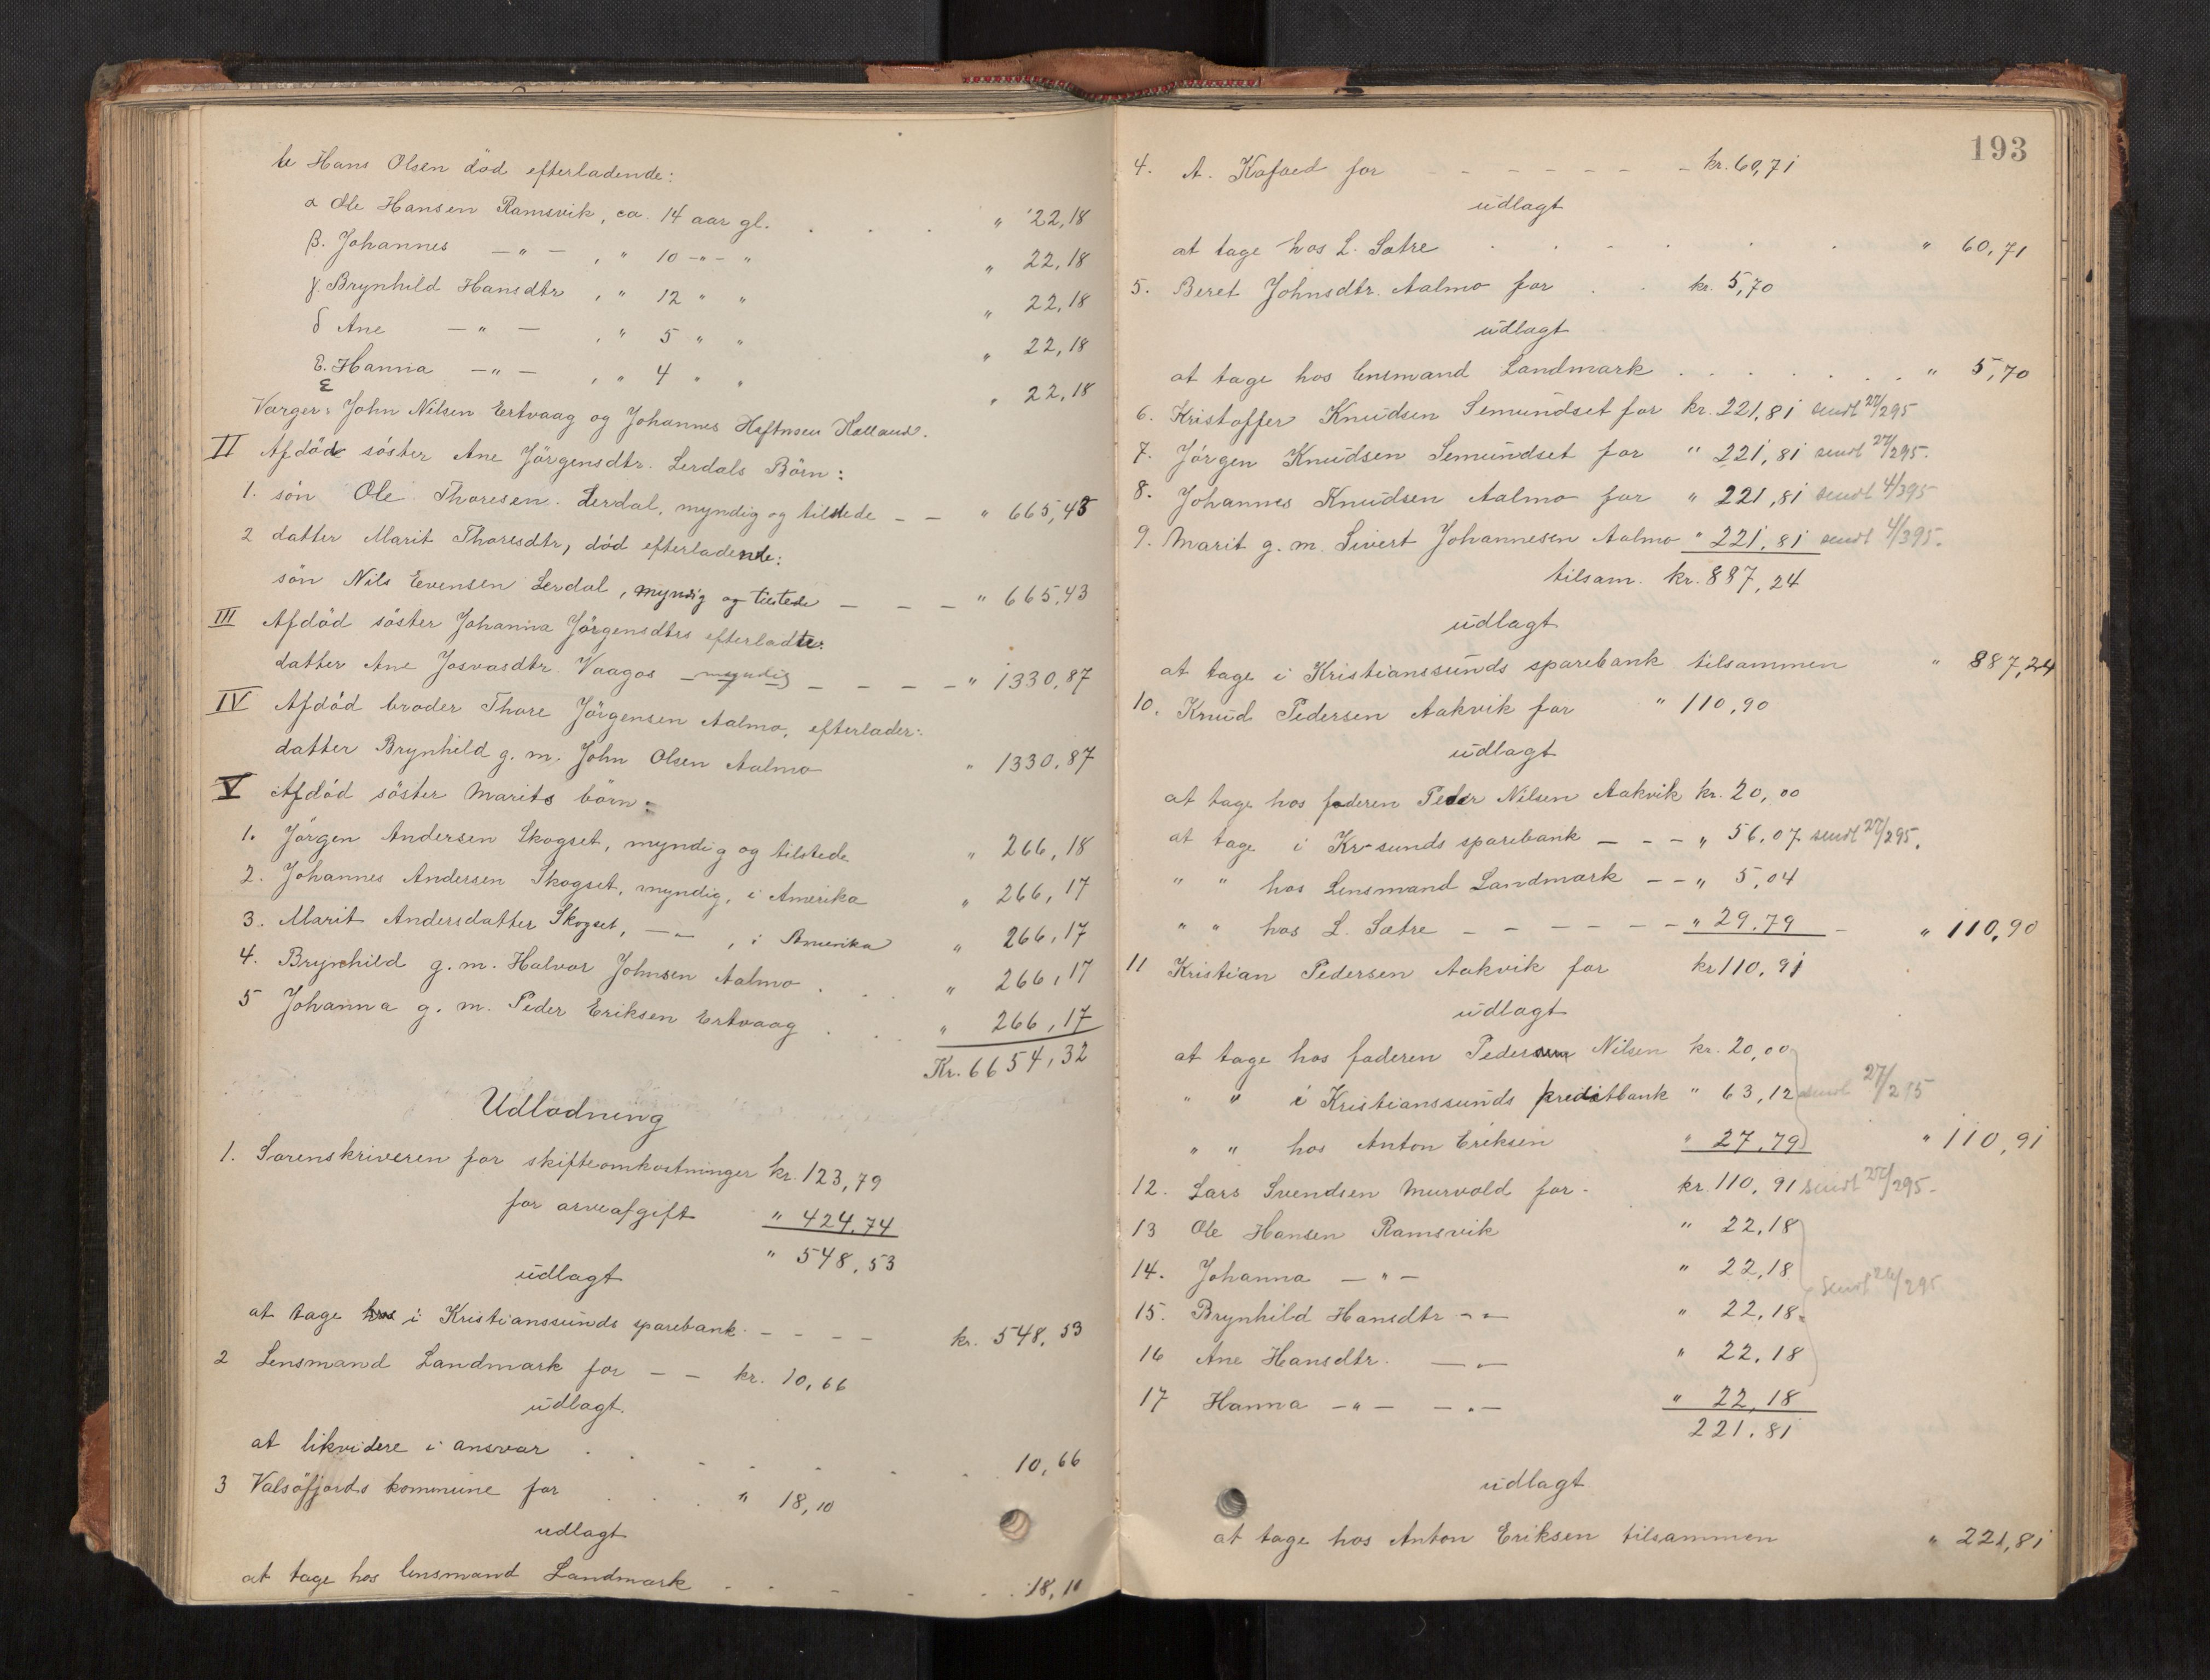 be Hans Olsen död efterladende:
α Ole Hansen Ramsvik, ca. 14 aar gl. . . . " 22,18
β. Johannes — " — , " 10 - " - " " 22,18
γ. Brynhild Hansdtr , " 12 " " " 22,18
δ Ane — " — , " 5 " " " 22,18
ε. Hanna — " — , " 4 " " " 22,18
ε
Værger: John Nilsen Ertvaag og Johannes Halland.
II Afdöd söster Ane Jörgensdtr. Lerdals Börn:
1. sön Ole Thoresen Lerdal, myndig og tilstede — — " 665,43
2 datter Marit Thoresdtr, död efterladende:
sön Nils Evensen Lerdal, myndig og tilstede — — — " 665,43
III Afdöd söster Johanna Jörgensdtrs efterladte:
datter Ane Josvasdtr. Vaagos — myndig — — — — " 1330,87
IV Afdöd broder Thore Jörgensen Aalmo, efterlader:
datter Brynhild g. m. John Olsen Aalmo " 1330,87
V Afdöd söster Marits börn:
1. Jörgen Andersen Skogset, myndig og tilstede " 266,18
2. Johannes Andersen Skogset, myndig, i Amerika " 266,17
3. Marit Andersdatter Skogset, — " — , i Amerika " 266,17
4. Brynhild g. m. Halvor Johnsen Aalmo . . . " 266,17
5 Johanna g. m. Peder Eriksen Ertvaag . . . " 266,17
Kr. 6654,32
Udlodning
1. Sorenskriveren for skifteomkostninger kr. 123,79
for arveafgift " 424,74
" 548,53
udlagt
at tage hos i Kristianssunds sparebank - — — — kr. 548,53
2 Lensmand Landmark for — — kr. 10,66
udlagt.
at likvidere i ansvar . . . . . . 10,66
3 Valsöfjords kommune for . . . " 18,10
udlagt
at tage hos lensmand Landmark . . . . . 18,10
193
4. A. Kofoed for — — — — — — kr. 60,71
udlagt
at tage hos L. Sætre . . . . . . " 60,71
5. Beret Johnsdtr. Aalmo for . . kr. 5,70
udlagt
at tage hos lensmand Landmark . . . . . . . " 5,70
6. Kristoffer Knudsen Semundset for kr. 221,81 sendt 27/2 95
7. Jörgen Knudsen Semundset for " 221,81 sendt 27/2 95.
8. Johannes Knudsen Aalmo for " 221,81 sendt 4/3 95
9. Marit g. m. Sivert Johannesen Aalmo " 221,81 sendt 4/3 95.
tilsam. kr. 887,24
udlagt
at tage i Kristianssunds sparebank tilsammen " 887,24
10. Knud Pedersen Aakvik for " 110,90
udlagt
at tage hos faderen Peder Nilsen Aakvik kr. 20,00
at tage i Kr-sunds sparebank — — — " 56,07 sendt 27/2 95.
" " hos Lensmand Landmark — — " 5,04
" " hos L. Sætre — — — — — — " 29,79 — " 110,90
11 Kristian Pedersen Aakvik for kr 110,91
udlagt
at tage hos faderen Peder Nilsen kr. 20,00
" " i Kristianssunds kreditbank " 63,12 sendt 27/2 95
" " hos Anton Eriksen " 27,79 " 110,91
12. Lars Svendsen Murvold for - kr. 110,91 sendt 27/2 95.
13 Ole Hansen Ramsvik " 22,18
14. Johanna — " — " 22,18 sendt 26/2 95
15. Brynhild Hansdtr — " — " 22,18
16 Ane Hansdtr. — " — " 22,18
17 Hanna — " — — " — " 22,18
221,81
udlagt
at tage hos Anton Eriksen tilsammen " 221,81